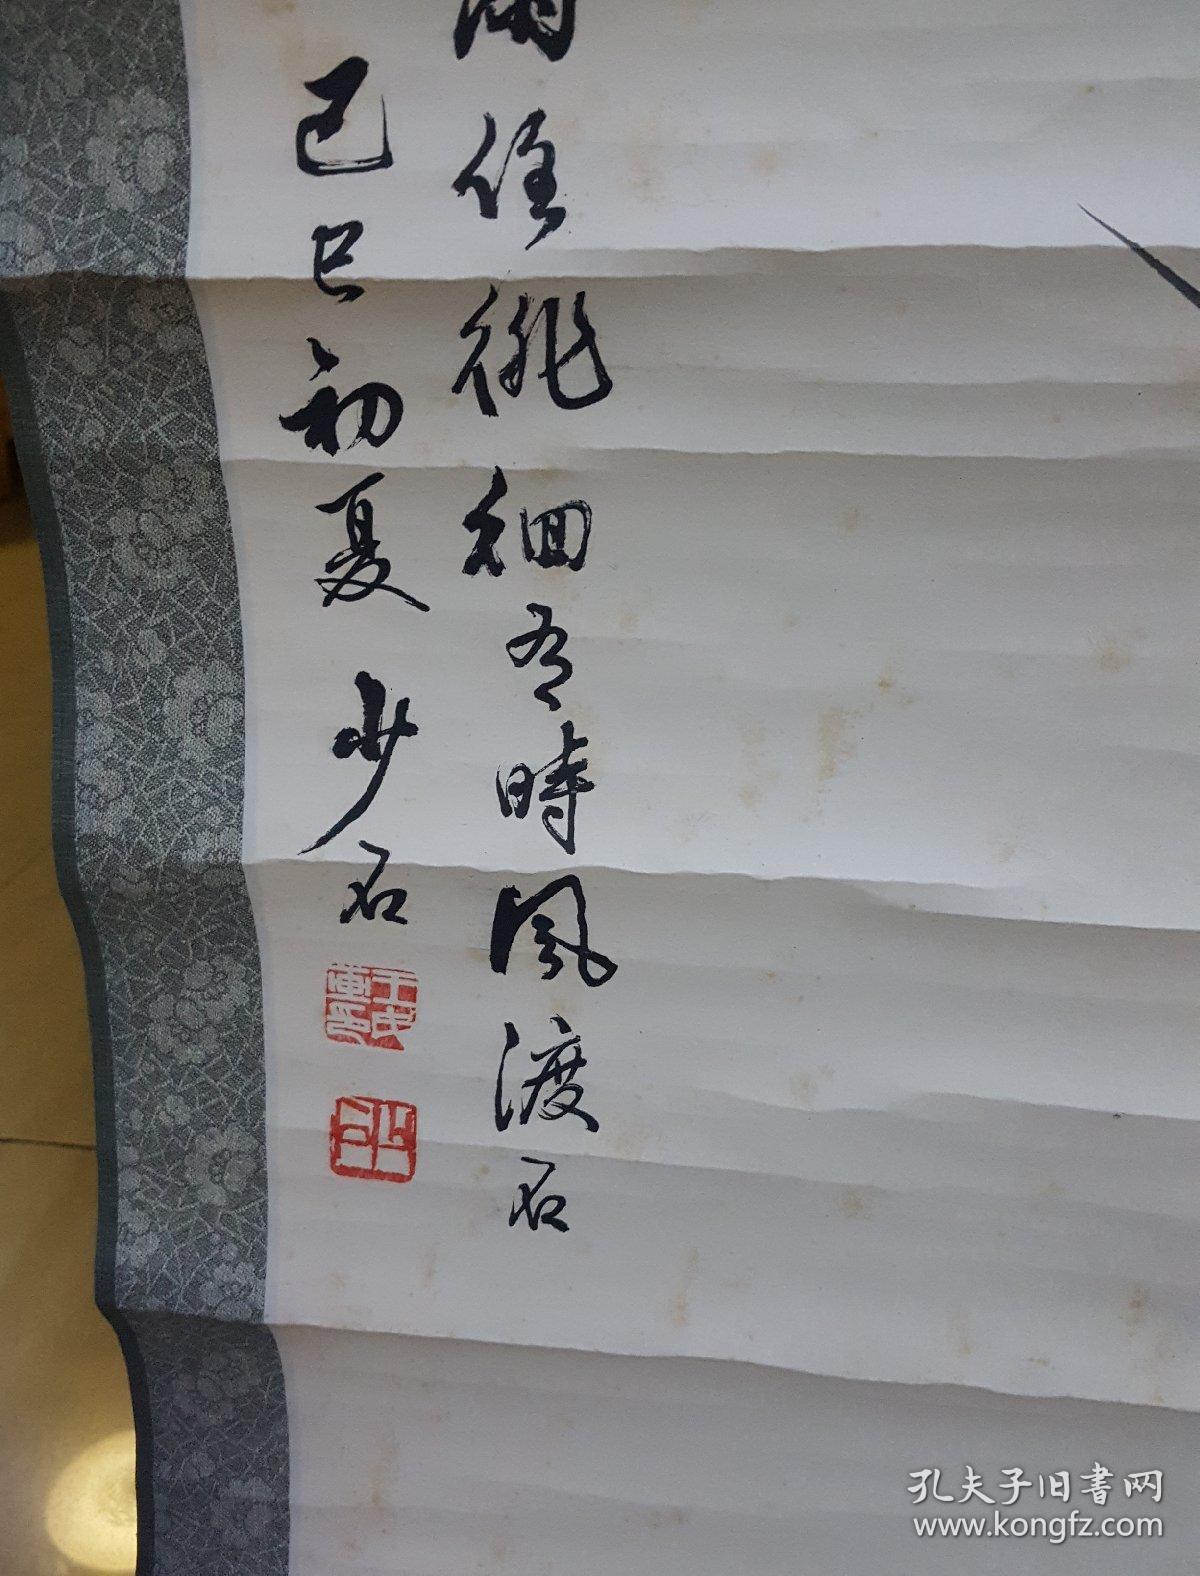 雨住徘徊有時風渡石
己巳初夏 少石
孔夫子旧书网
www.kongfz.com